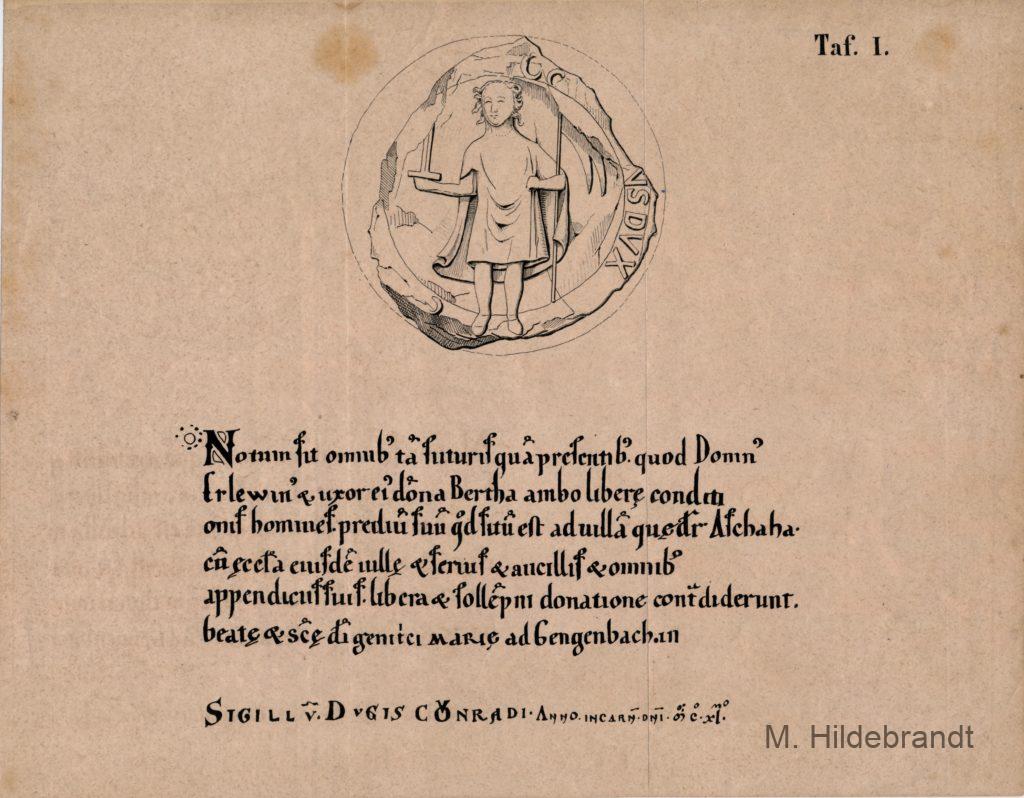 Taf. I.
NS DVX
Notum sit omnib᾽ tā futuris quā presentib᾽. quod Domn᾽
Erlewin᾽ & uxor ei᾽ dōna Bertha ambo liberę conditi
onis homines. prediū suū qđ sitū est ad uillā quę dr̄ Aschaha·
cū ęcc̄ſa eiusdē uillę & seruis & ancillis & omnib᾽
appendiciis suis. libera & sollēpni donatione contᷓdiderunt.
beatę & sc̄ę dī genit᷒ci MARIĘ ad Gengenbach. in
SIGILLV̄. DVCIS CONRADI. ANNO. INCARN̄. DN̄I. M̊. C̊. XL̊.
M. Hildebrandt